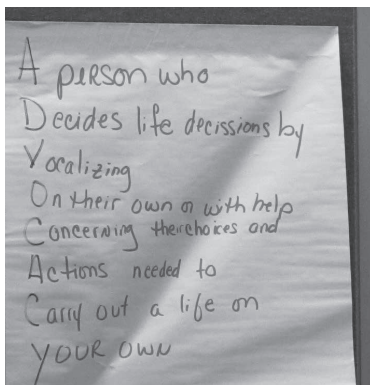 A person who
Decides life decissions by
Vocalizing
On their own or with help
Concerning their choices and
Actions needed to
Carry out a life on
YOUR OWN